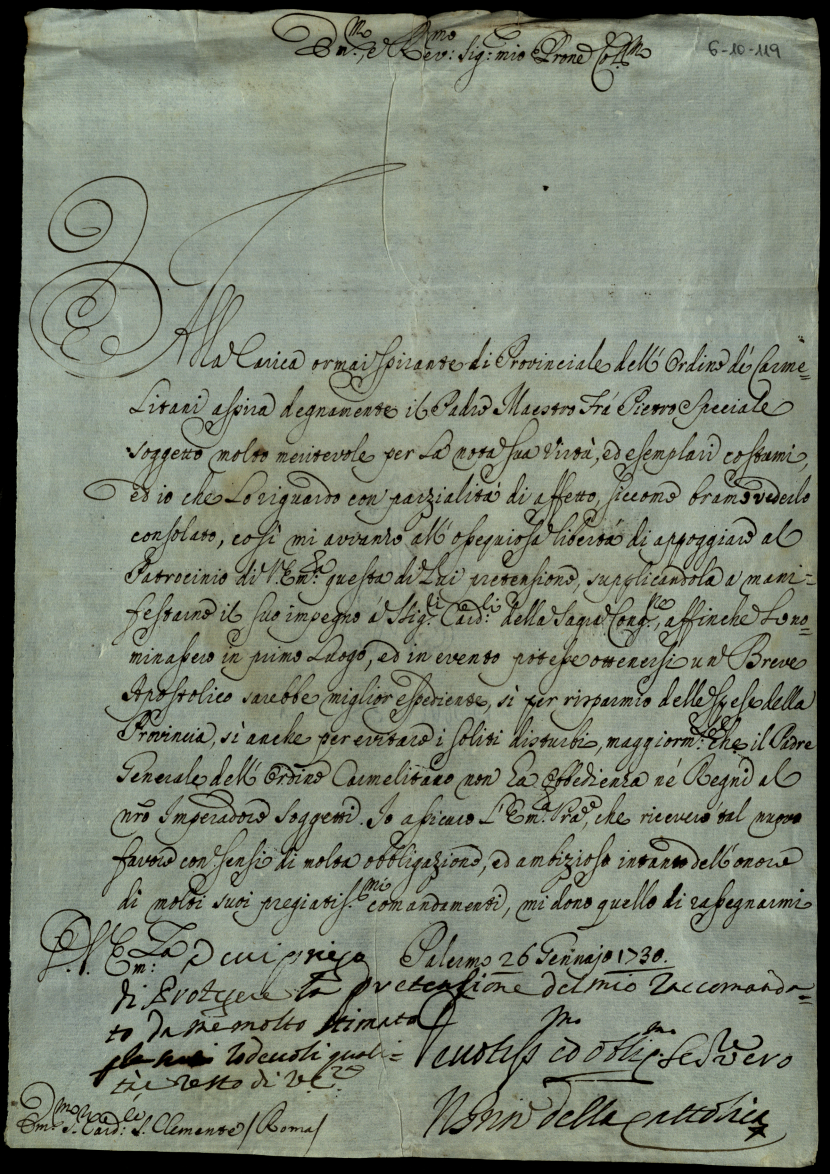 Em.mo, e Rev.mo Sig: mio P'rone Col.mo
6-10-119
Alla Carica ormai spirante di Provinciale dell' Ordine de' Carme=
litani aspira degnamente il Padre Maestro Frá Pietro Speciale
soggetto molto meritevole per la nota sua Virtù, ed esemplari costumi,
ed io che lo riguardo con parzialità di affetto, siccome bramo vederlo
consolato, così mi avvanzo all' ossequiosa libertá di appoggiare al
Patrocinio di V. Em.za questa di lui pretensione, supplicandola a mani=
festarne il suo impegno á SSig.ri Card.li della Sagra Cong.ne, affinche lo no=
minassero in primo luogo, ed in evento potesse ottenersi un Breve
Apostolico sarebbe miglior espediente, sì per risparmio delle spese della
Provincia, sì anche per evitare i soliti disturbi, maggiorm.te che il Padre
Generale dell' Ordine Carmelitano non ha obbedienza né Regni al
nrõ Imperadore soggetti. Io assicuro l' Em.a V'ra, che riceveró tal nuovo
favore con sensi di molta obbligazione, ed ambizioso intanto dell' onore
di molti suoi pregiatis.mi comandamenti, mi dono quello di rassegnarmi
D. V. Em.za
Palermo 26 Gennajo 1730.
a cui priego
di Protegere la pretensione del mio raccomanda=
to da me molto stimato
lodevoli quali=
tà e resto di V. E.za
Devotiss.mo ed obblig.mo Ser.re vero
della Cattolica
Em.mo S. Card: S. Clemente / Roma /